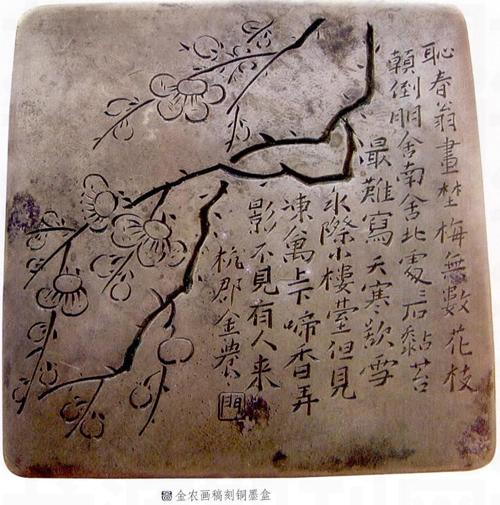 恥春翁畫埜梅無數花枝
顛倒開舍南舍北處三石黏苔
最難寫天寒欲雪
水際小樓臺但見
凍禽上下啼香弄
影不見有人来
杭郡金農
金农画稿刻铜墨盒